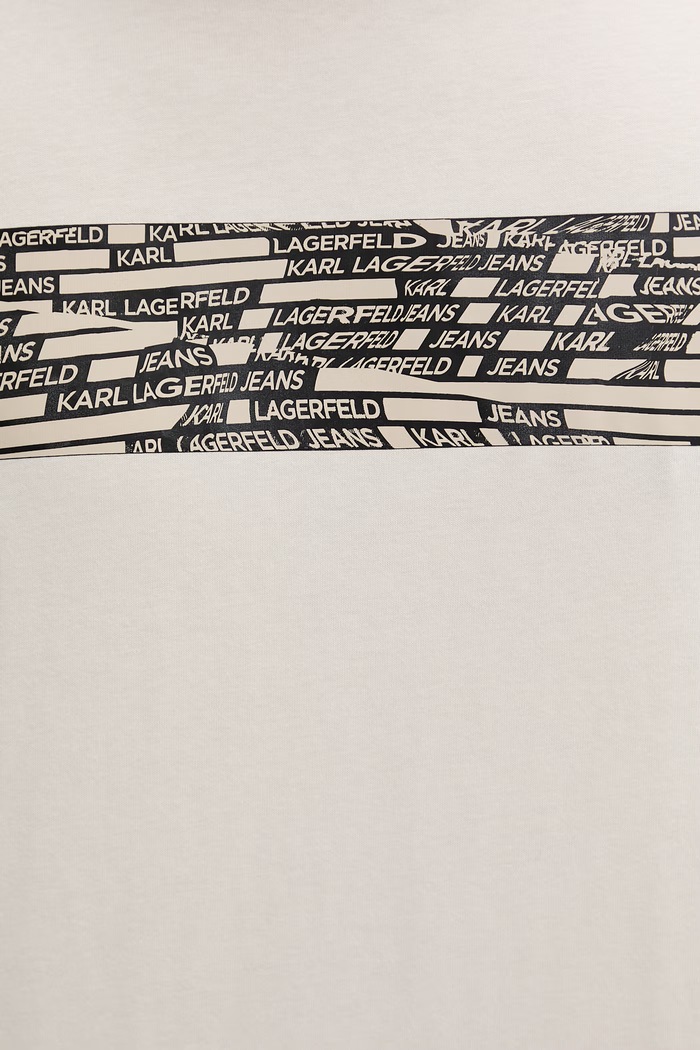 AGERFELD KARL LAGERFELD JEANS KARL LAGERFELD JEA
S KARL LAGERFELD JEANS KARL LAGERFELD
KARL LAGERFELD JEANS
JEANS KARL LAGERFEL JEANS
KARL LAGERFELD KARL LAGERFELD JEANS KARL LAGERFEL
S KARL LAGERFELD JEANS KARL LAGERFELD
ANS JEANS LAGERFELD JEANS KARL
RFELD KARL LAGERFELD JEANS
KARL LAGERFELD JEANS KARL LAGERFELD JEANS
ARL LAGERFELD JEANS KARL LAGERFELD